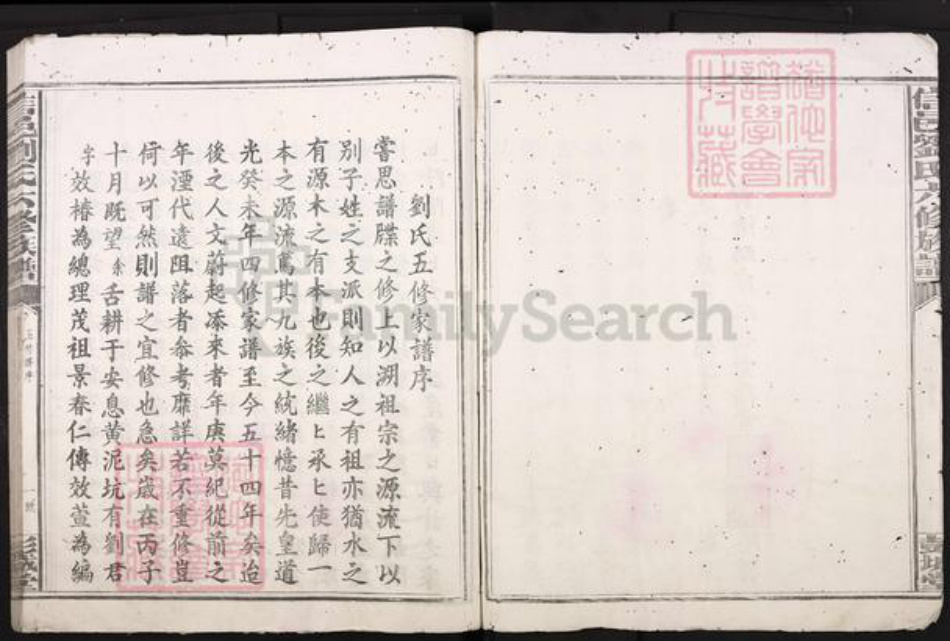 信邑劉氏六修族譜
彭城堂
劉氏五修家譜序
嘗思譜牒之修上以溯祖宗之源流下以
別子姓之支派則知人之有祖亦猶水之
有源木之有本也後之繼﹅承﹅使歸一
本之源流篤其九族之統緒憶昔先皇道
光癸未年四修家譜至今五十四年矣迨
後之人文蔚起添來者年庚莫紀從前之
年湮代遠阻落者叅考靡詳若不重修豈
何以可然則譜之宜修也急矣歲在丙子
十月既望余舌耕于安息黃泥坑有劉君
字效椿為總理茂祖景春仁傳效萱為編
信邑劉氏六修族譜
五修譜序
一號
彭城堂
FamilySearch